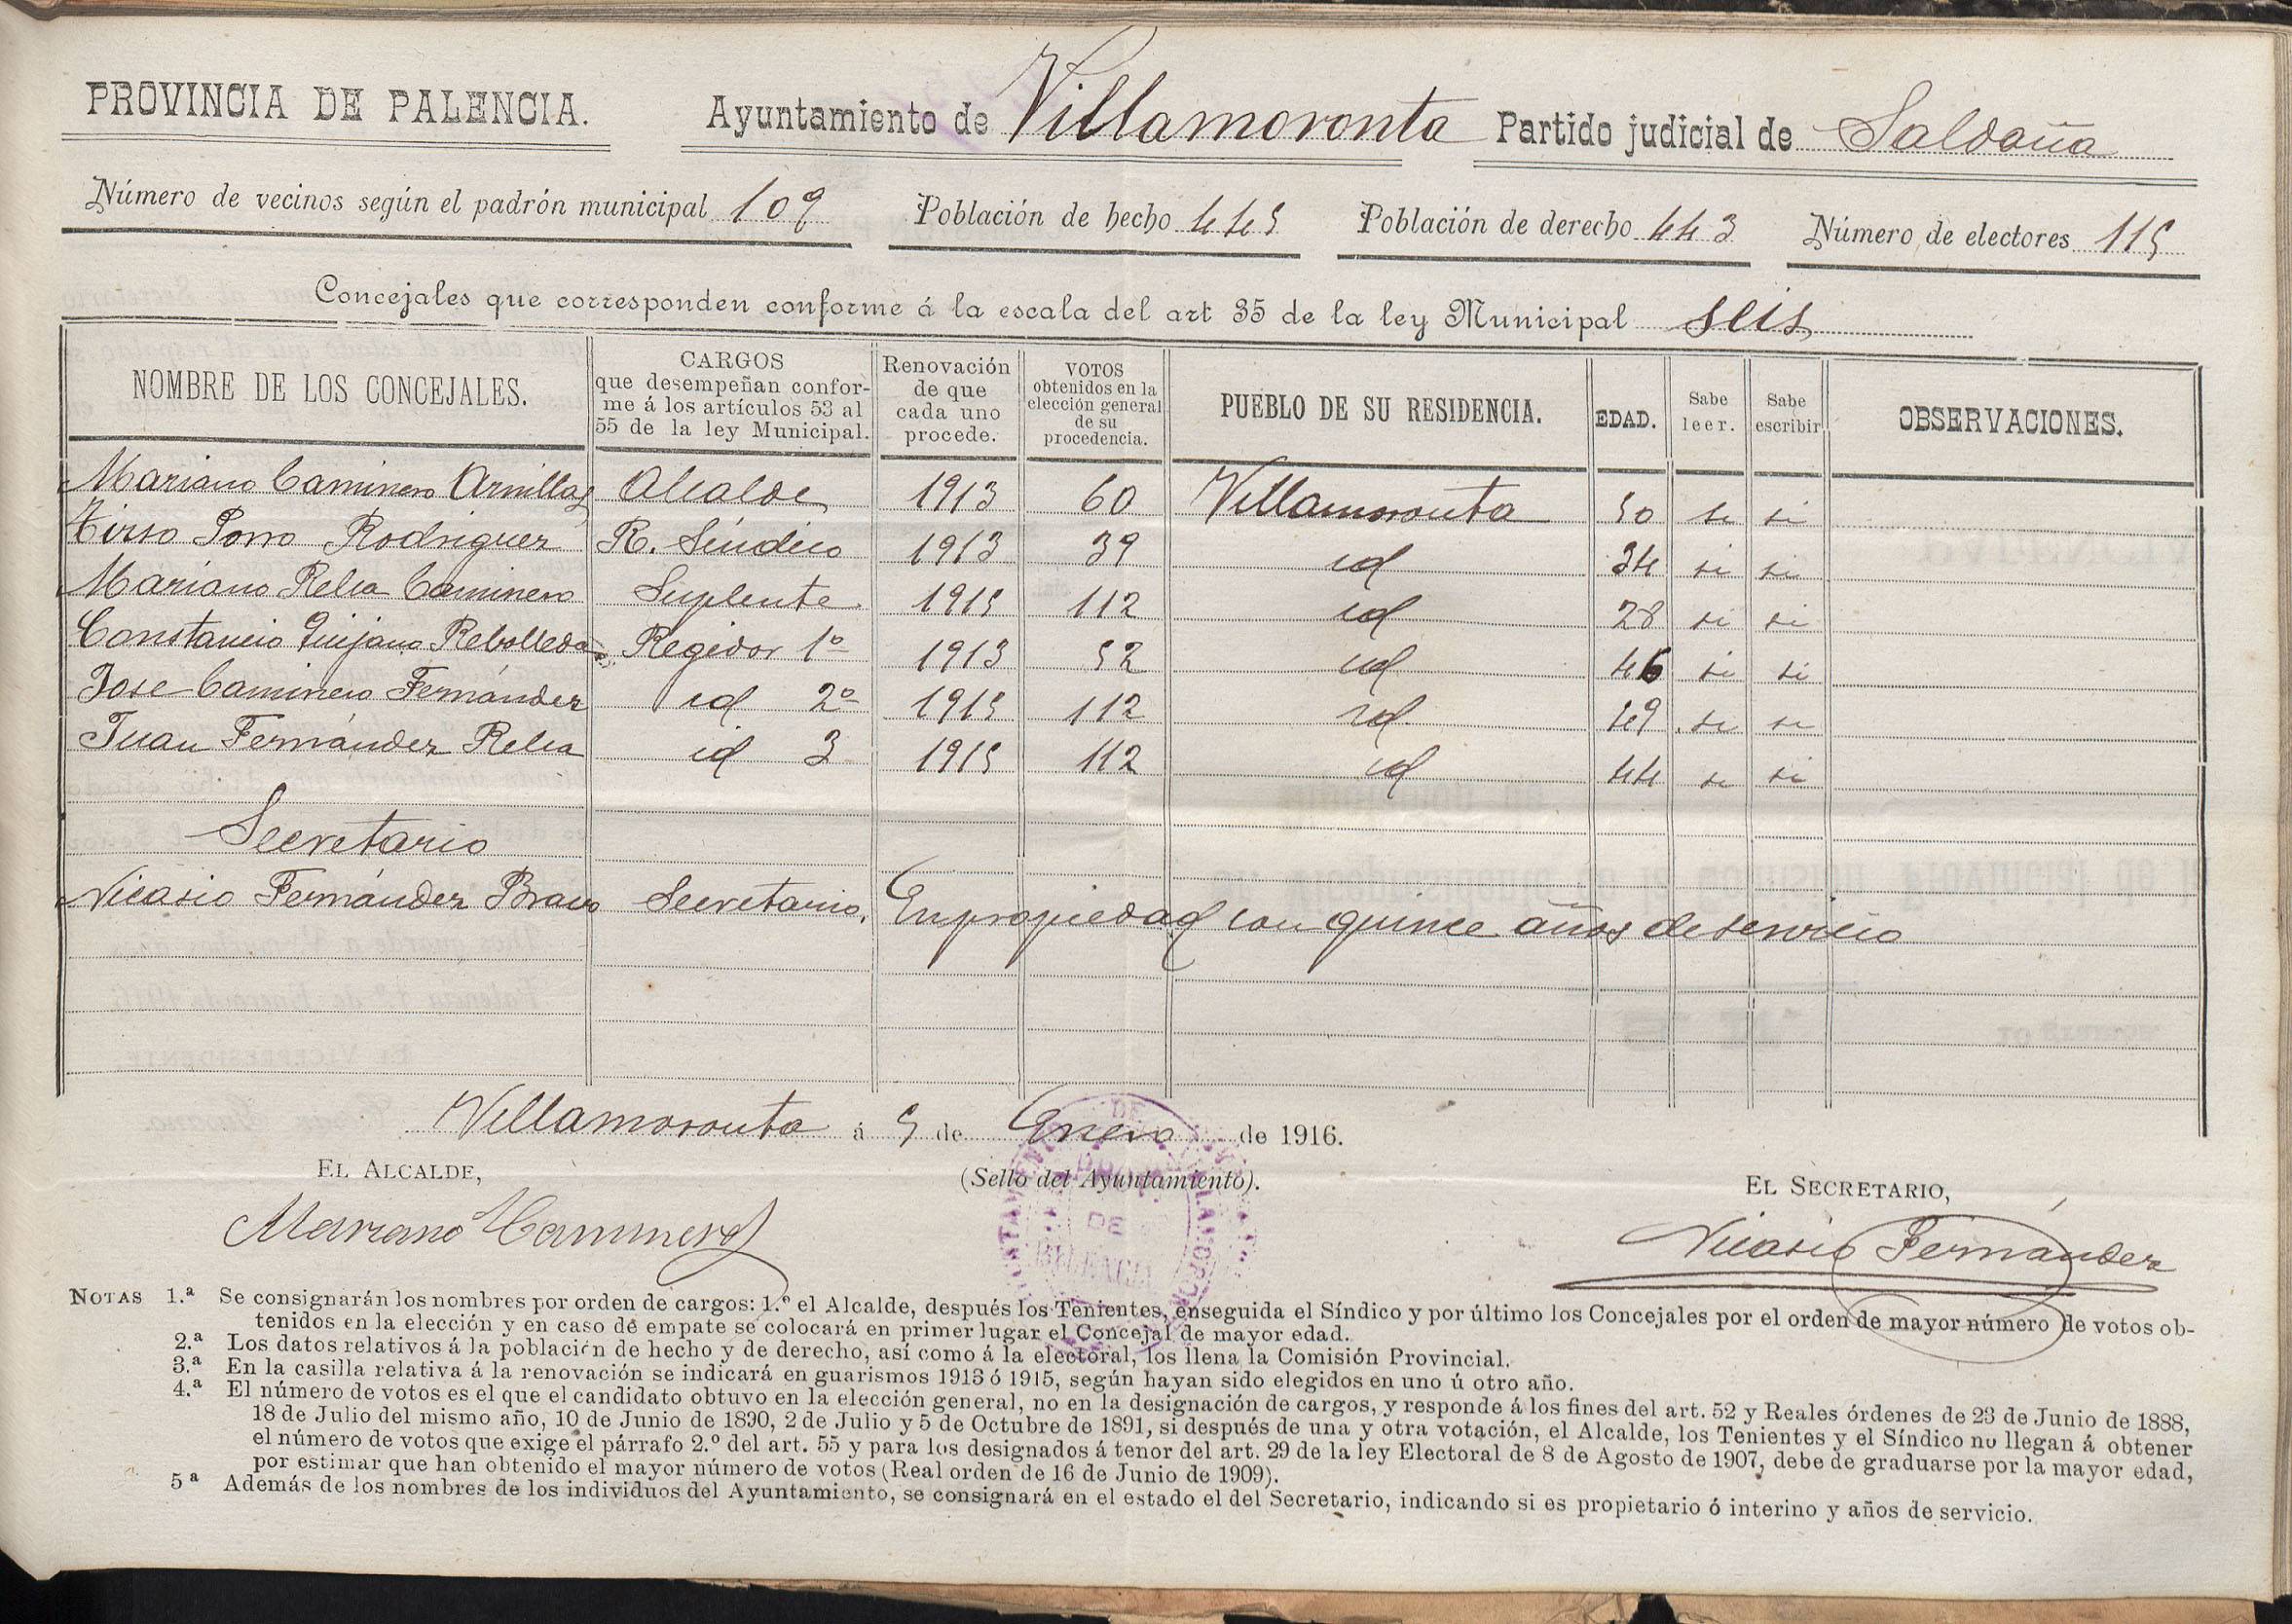 PROVINCIA DE PALENCIA. Ayuntamiento de Villamoronta Partido judicial de Saldaña
Número de vecinos según el padrón municipal 109 Población de hecho 445 Población de derecho 443 Número de electores 115
Concejales que corresponden conforme á la escala del art 35 de la ley Municipal seis
NOMBRE DE LOS CONCEJALES. CARGOS que desempeñan conforme á los artículos 53 al 55 de la ley Municipal. Renovación de que cada uno procede. VOTOS obtenidos en la elección general de su procedencia. PUEBLO DE SU RESIDENCIA. EDAD. Sabe leer. Sabe escribir OBSERVACIONES.
Mariano Caminero Arnillas Alcalde 1913 60 Villamoronta 50 si si
Tirso Porro Rodriguez R. Síndico 1913 39 id 34 si si
Mariano Relea Caminero Suplente 1915 112 id 28 si si
Constancio Quijano Rebolledo Regidor 1º 1913 52 id 46 si si
Jose Caminero Fernández id 2º 1915 112 id 49 si si
Juan Fernández Relea id 3 1915 112 id 44 si si
Secretario
Nicasio Fernández Bravo Secretario. En propiedad con quince años de servicio
Villamoronta á 5 de Enero de 1916.
EL ALCALDE, (Sello del Ayuntamiento). EL SECRETARIO,
Mariano Caminero Nicasio Fernández
NOTAS 1.ª Se consignarán los nombres por orden de cargos: 1.º el Alcalde, después los Tenientes, enseguida el Síndico y por último los Concejales por el orden de mayor número de votos ob-
tenidos en la elección y en caso de empate se colocará en primer lugar el Concejal de mayor edad.
2.ª Los datos relativos á la población de hecho y de derecho, así como á la electoral, los llena la Comisión Provincial.
3.ª En la casilla relativa á la renovación se indicará en guarismos 1913 ó 1915, según hayan sido elegidos en uno ú otro año.
4.ª El número de votos es el que el candidato obtuvo en la elección general, no en la designación de cargos, y responde á los fines del art. 52 y Reales órdenes de 23 de Junio de 1888,
18 de Julio del mismo año, 10 de Junio de 1890, 2 de Julio y 5 de Octubre de 1891, si después de una y otra votación, el Alcalde, los Tenientes y el Síndico no llegan á obtener
el número de votos que exige el párrafo 2.º del art. 55 y para los designados á tenor del art. 29 de la ley Electoral de 8 de Agosto de 1907, debe de graduarse por la mayor edad,
por estimar que han obtenido el mayor número de votos (Real orden de 16 de Junio de 1909).
5ª Además de los nombres de los individuos del Ayuntamiento, se consignará en el estado el del Secretario, indicando si es propietario ó interino y años de servicio.